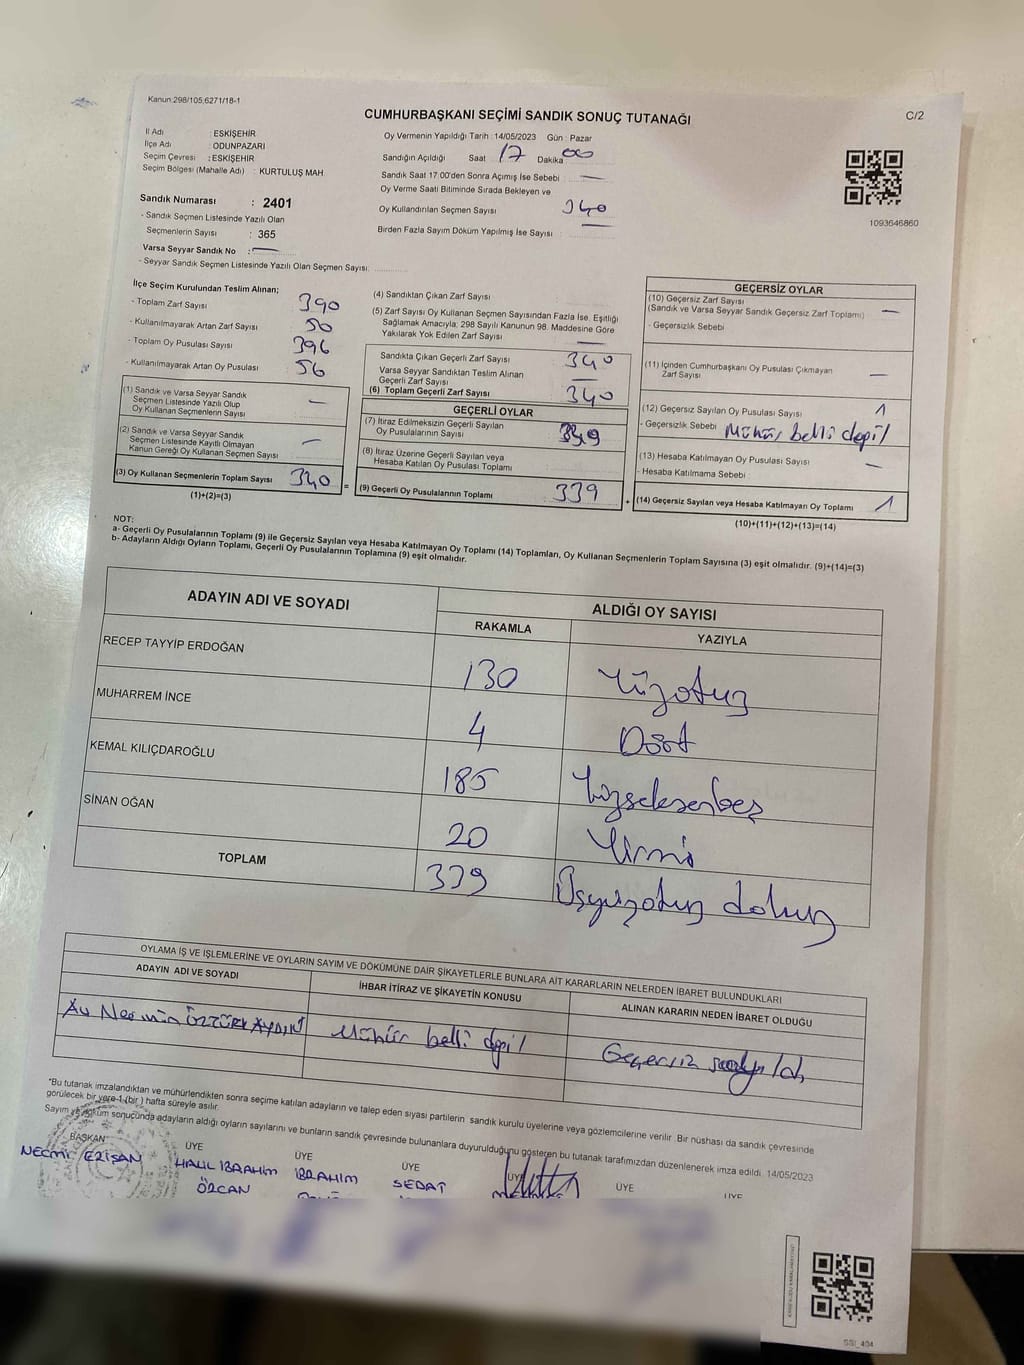 Kanun 298/105,6271/18-1
CUMHURBAŞKANI SEÇİMİ SANDIK SONUÇ TUTANAĞI
C/2
İl Adı : ESKİŞEHİR
İlçe Adı : ODUNPAZARI
Seçim Çevresi : ESKİŞEHİR
Seçim Bölgesi (Mahalle Adı) : KURTULUŞ MAH
Sandık Numarası : 2401
- Sandık Seçmen Listesinde Yazılı Olan
Seçmenlerin Sayısı : 365
Varsa Seyyar Sandık No : —
- Seyyar Sandık Seçmen Listesinde Yazılı Olan Seçmen Sayısı:
Oy Vermenin Yapıldığı Tarih : 14/05/2023 Gün : Pazar
Sandığın Açıldığı Saat 17 Dakika 00
Sandık Saat 17:00'den Sonra Açımış İse Sebebi : —
Oy Verme Saati Bitiminde Sırada Bekleyen ve
Oy Kullandırılan Seçmen Sayısı 340
Birden Fazla Sayım Döküm Yapılmış İse Sayısı : —
1093646860
İlçe Seçim Kurulundan Teslim Alınan;
- Toplam Zarf Sayısı 390
- Kullanılmayarak Artan Zarf Sayısı 50
- Toplam Oy Pusulası Sayısı 396
- Kullanılmayarak Artan Oy Pusulası 56
(1) Sandık ve Varsa Seyyar Sandık
Seçmen Listesinde Yazılı Olup
Oy Kullanan Seçmenlerin Sayısı —
(2) Sandık ve Varsa Seyyar Sandık
Seçmen Listesinde Kayıtlı Olmayan
Kanun Gereği Oy Kullanan Seçmen Sayısı —
(3) Oy Kullanan Seçmenlerin Toplam Sayısı 340 =
(1)+(2)=(3)
(4) Sandıktan Çıkan Zarf Sayısı
(5) Zarf Sayısı Oy Kullanan Seçmen Sayısından Fazla İse, Eşitliği
Sağlamak Amacıyla; 298 Sayılı Kanunun 98. Maddesine Göre
Yakılarak Yok Edilen Zarf Sayısı —
Sandıkta Çıkan Geçerli Zarf Sayısı 340
Varsa Seyyar Sandıktan Teslim Alınan
Geçerli Zarf Sayısı —
(6) Toplam Geçerli Zarf Sayısı 340
GEÇERLİ OYLAR
(7) İtiraz Edilmeksizin Geçerli Sayılan
Oy Pusulalarının Sayısı
(8) İtiraz Üzerine Geçerli Sayılan veya
Hesaba Katılan Oy Pusulası Toplamı
(9) Geçerli Oy Pusulalarının Toplamı 339 +
GEÇERSİZ OYLAR
(10) Geçersiz Zarf Sayısı
(Sandık ve Varsa Seyyar Sandık Geçersiz Zarf Toplamı) —
- Geçersizlik Sebebi
(11) İçinden Cumhurbaşkanı Oy Pusulası Çıkmayan
Zarf Sayısı —
(12) Geçersiz Sayılan Oy Pusulası Sayısı 1
- Geçersizlik Sebebi Mühür belli değil
(13) Hesaba Katılmayan Oy Pusulası Sayısı —
- Hesaba Katılmama Sebebi :
(14) Geçersiz Sayılan veya Hesaba Katılmayan Oy Toplamı 1
(10)+(11)+(12)+(13)=(14)
NOT:
a- Geçerli Oy Pusulalarının Toplamı (9) ile Geçersiz Sayılan veya Hesaba Katılmayan Oy Toplamı (14) Toplamları, Oy Kullanan Seçmenlerin Toplam Sayısına (3) eşit olmalıdır. (9)+(14)=(3)
b- Adayların Aldığı Oyların Toplamı, Geçerli Oy Pusulalarının Toplamına (9) eşit olmalıdır.
ADAYIN ADI VE SOYADI
ALDIĞI OY SAYISI
RAKAMLA YAZIYLA
RECEP TAYYİP ERDOĞAN 130 Yüzotuz
MUHARREM İNCE 4 Dört
KEMAL KILIÇDAROĞLU 185 Yüzseksenbeş
SİNAN OĞAN 20 Yirmi
TOPLAM 339 Üçyüzotuz dokuz
OYLAMA İŞ VE İŞLEMLERİNE VE OYLARIN SAYIM VE DÖKÜMÜNE DAİR ŞİKAYETLERLE BUNLARA AİT KARARLARIN NELERDEN İBARET BULUNDUKLARI
ADAYIN ADI VE SOYADI İHBAR İTİRAZ VE ŞİKAYETİN KONUSU ALINAN KARARIN NEDEN İBARET OLDUĞU
Av Nermin ÖZTÜRK AYDIN Mühür belli değil Geçersiz sayıldı
"Bu tutanak imzalandıktan ve mühürlendikten sonra seçime katılan adayların ve talep eden siyasi partilerin sandık kurulu üyelerine veya gözlemcilerine verilir. Bir nüshası da sandık çevresinde
görülecek bir yere 1 (bir) hafta süreyle asılır.
Sayım ve döküm sonucunda adayların aldığı oyların sayılarını ve bunların sandık çevresinde bulunanlara duyurulduğunu gösteren bu tutanak tarafımızdan düzenlenerek imza edildi. 14/05/2023
BAŞKAN ÜYE ÜYE ÜYE ÜYE ÜYE ÜYE
NECMİ ERİŞAN HALİL İBRAHİM İBRAHİM SEDAT
ÖZCAN